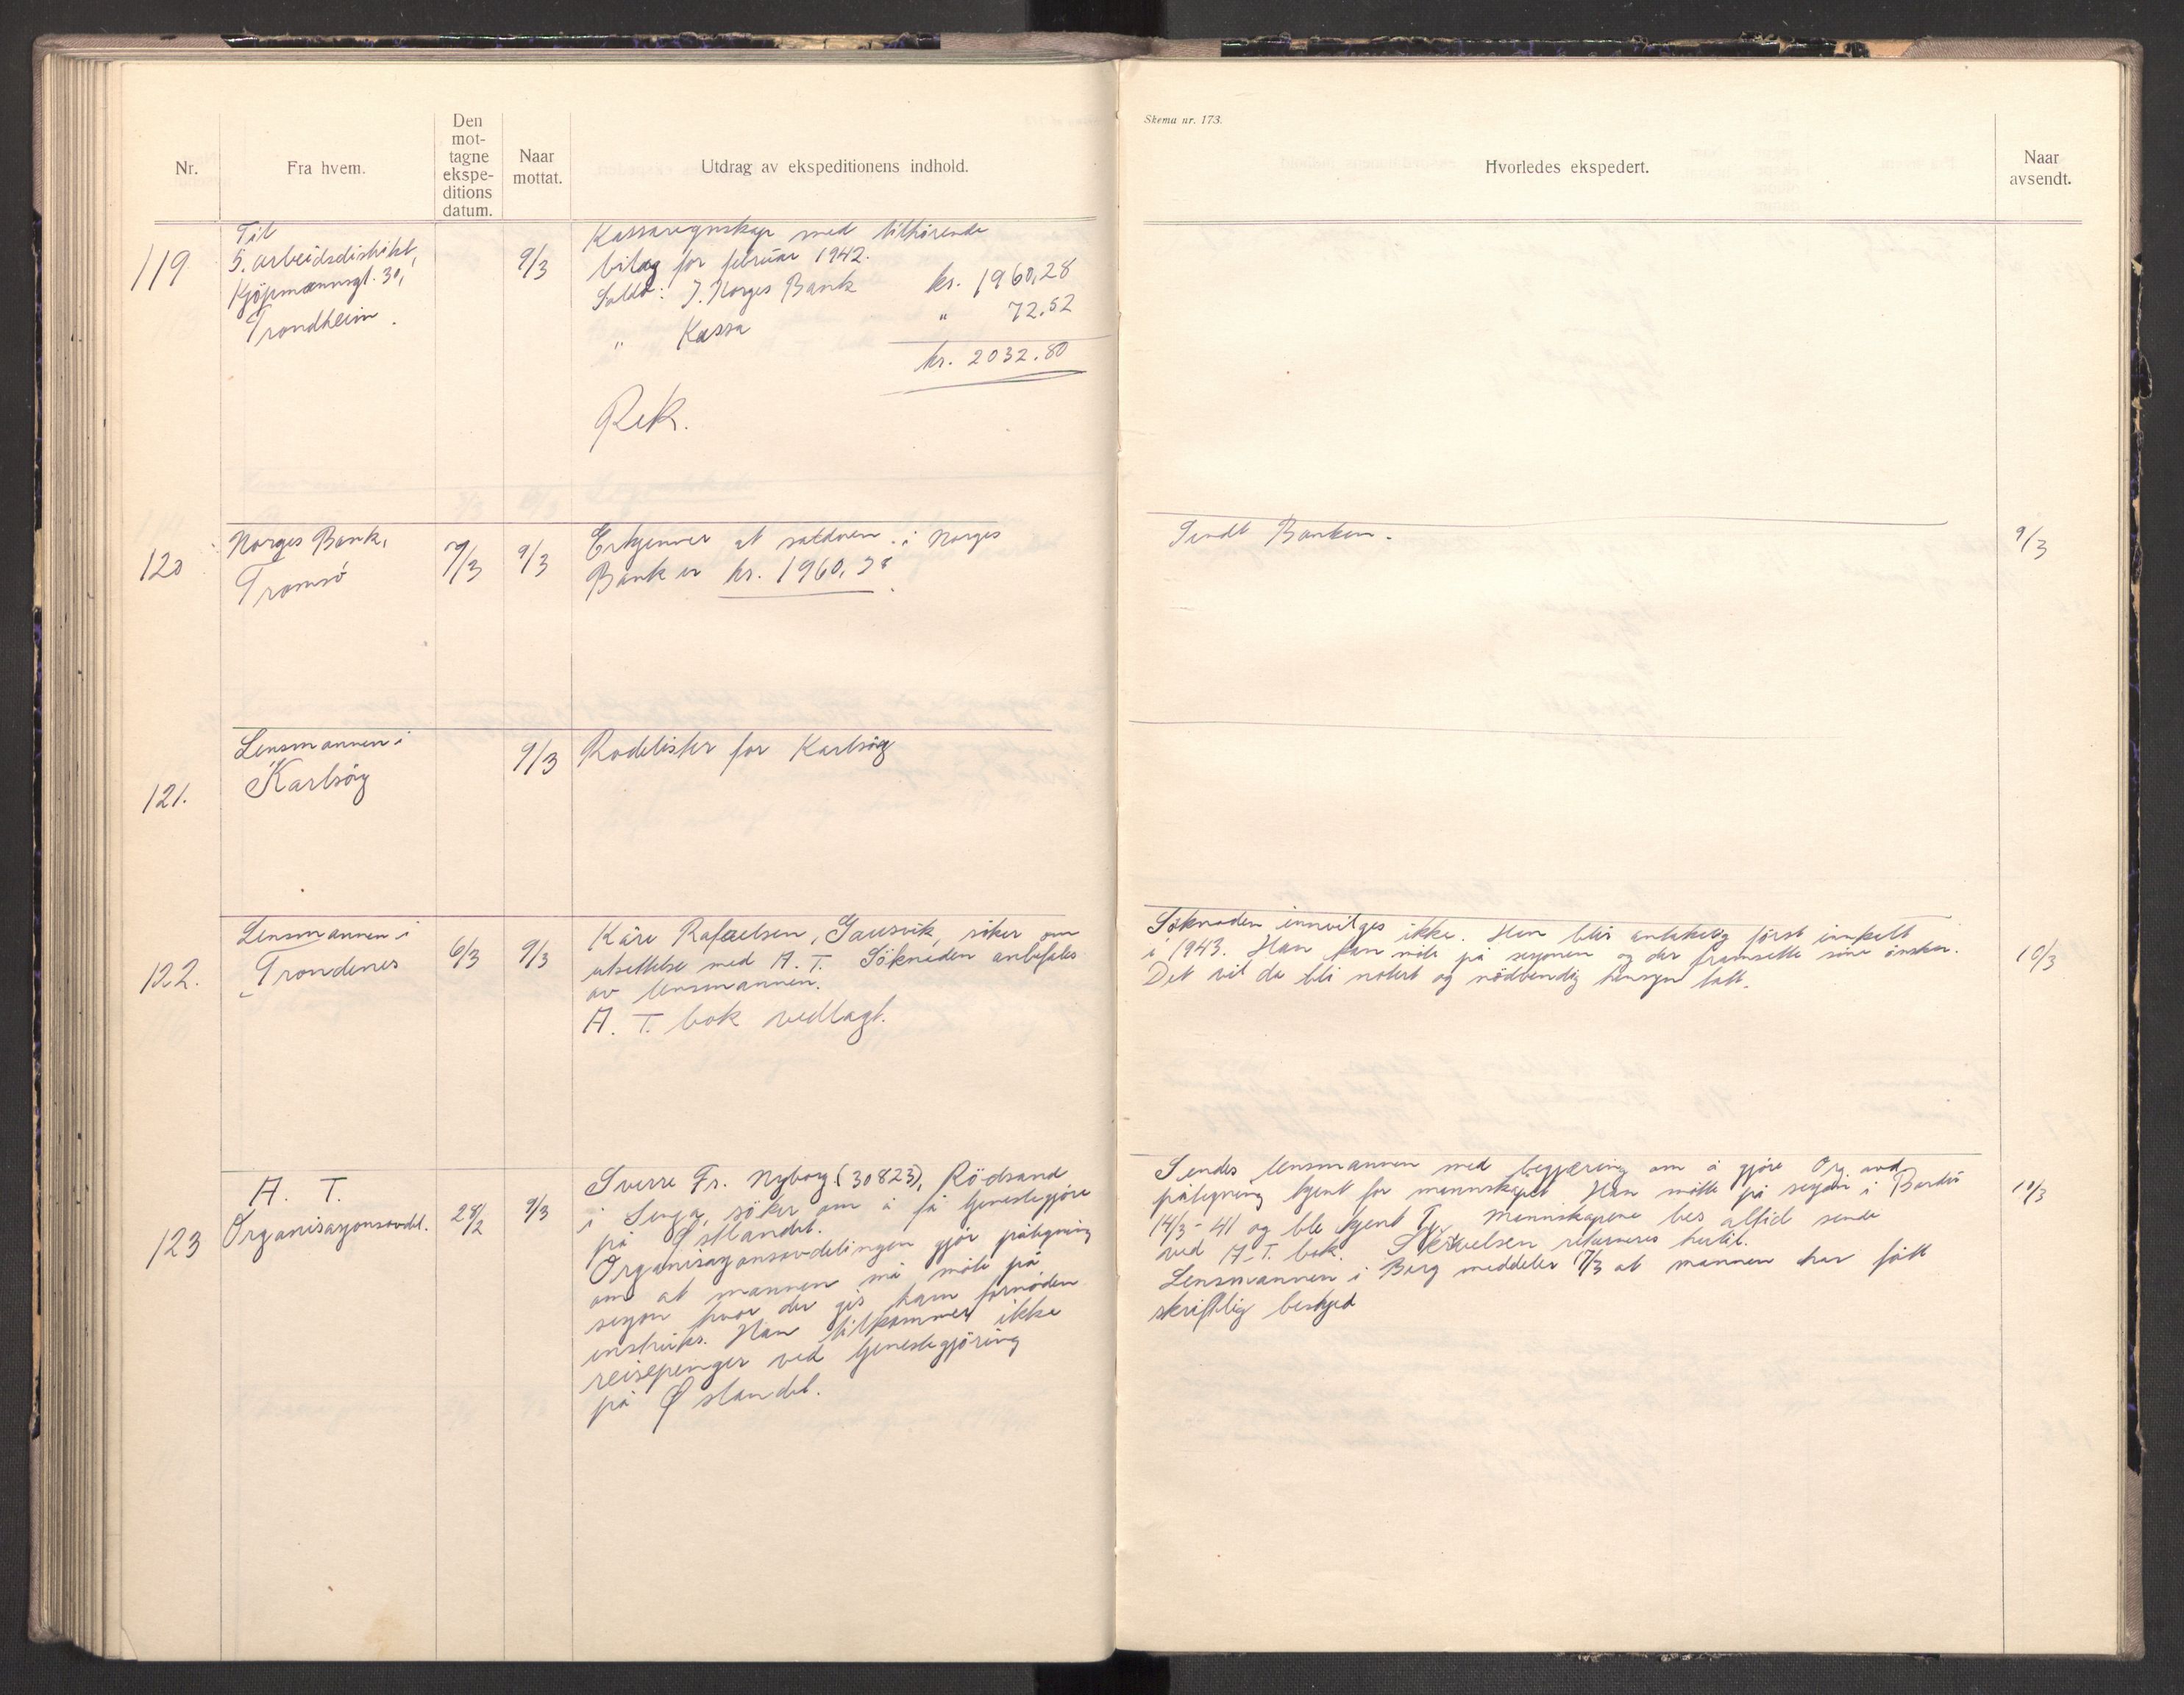 Skema nr. 173.
Nr.
Fra hvem.
Den
mot-
tagne
ekspe-
ditions
datum.
Naar
mottat.
Utdrag av ekspeditionens indhold.
Hvorledes ekspedert.
Naar
avsendt.
119
Til
5. arbeidsdistrikt,
Kjöpmannsgt. 30,
Trondheim.
9/3
Kassaregnskap med tilhörende
bilag for februar 1942.
Saldo: I. Norges Bank kr. 1960,28
" Kassa " 72.52
kr. 2032.80
Rek.
120
Norges Bank,
Tromsö
7/3
9/3
Erkjenner at saldoen i Norges
Bank er kr. 1960,28
Sendt Banken.
9/3
121.
Lensmannen i
Karlsöy
9/3
Rodelister for Karlsöy
122.
Lensmannen i
Trondenes
6/3
9/3
Kåre Rafaelsen, Gausvik, söker om
utsettelse med A. T. Söknaden anbefales
av lensmannen.
A. T. bok vedlagt.
Söknaden innvilges ikke. Han blir antakelig först innkalt
i 1943. Han kan möte på sesjonen og der framsette sine önsker.
Det vil da bli notert og nödvendig hensyn tatt.
10/3
123
A. T.
Organisasjonsavdel.
28/2
9/3
Sverre Fr. Nyborg (30823), Rödsand
i Senja, söker om å få tjenestegjöre
på Östlandet.
Organisasjonsavdelingen gjör påtegning
om at mannen må möte på
sesjon hvor der gis ham fornöden
instruks. Han tilkommer ikke
reisepenger ved tjenestegjöring
på Östlandet.
Sendes lensmannen med begjæring om å gjöre Org. avd.
påtegning kjent for mannskapet. Han mötte på sesjon i
14/3 - 41 og ble kjent Mannskapene bes alltid sende
ved A. T. bok. Skrivelsen returneres hertil.
Lensmannen i Berg meddeler 17/3 at mannen har fått
skriftlig beskjed